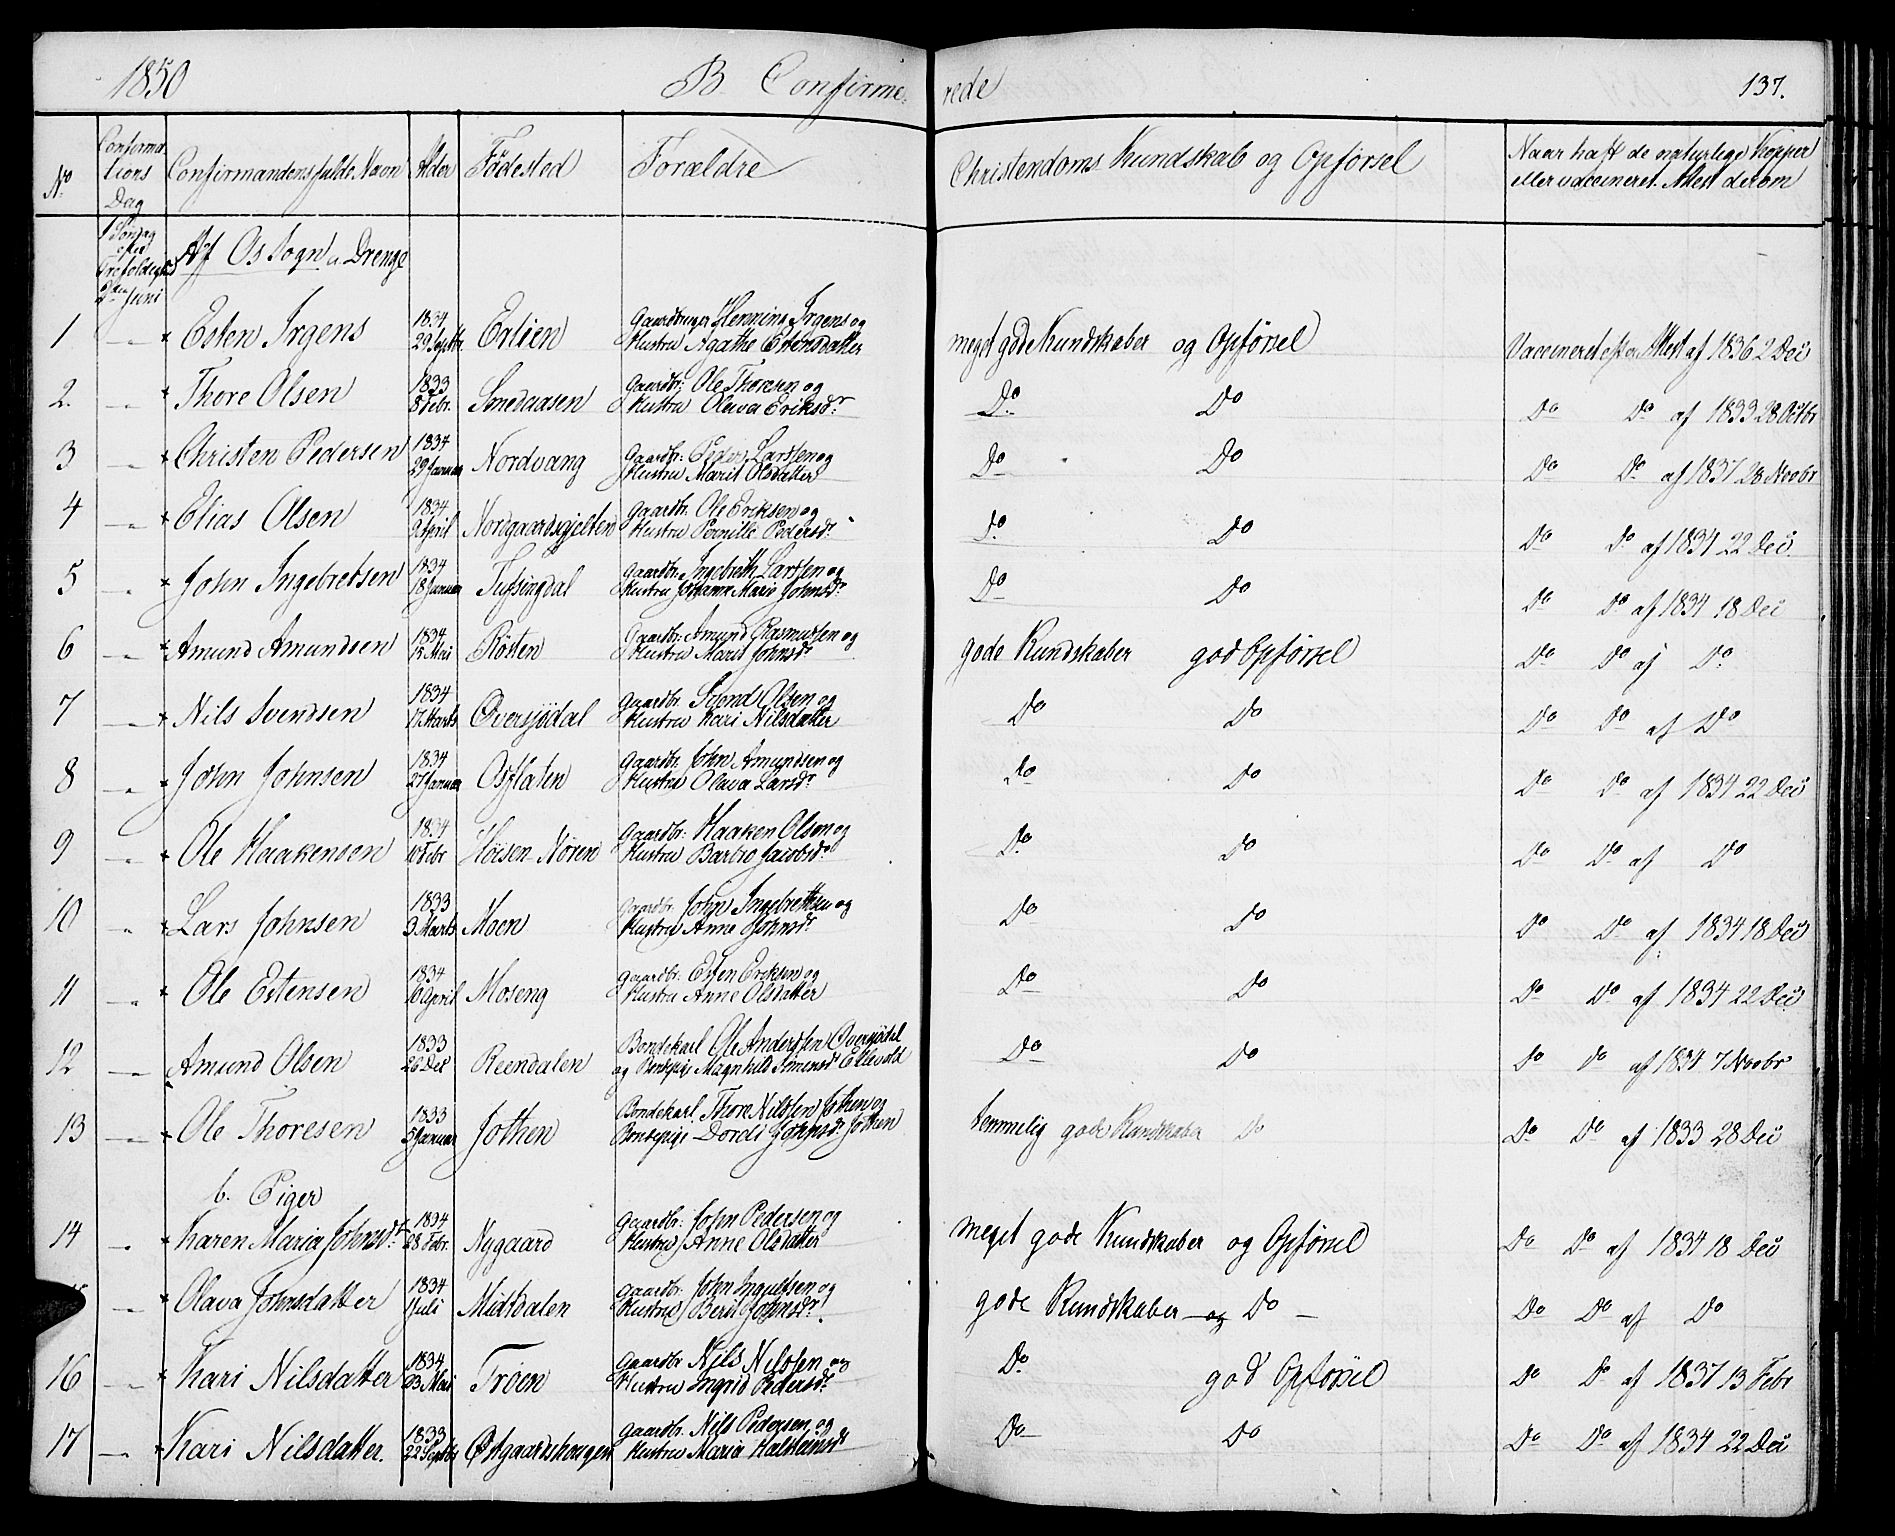 1850 B. Confirme- rede 137.
No Confirmations Dag Confirmandens fulde Navn Alder Födested Forældre Christendoms Kundskab og Opförsel Naar haft de naturlige Kopper eller vaccineret. Attest derom
1 Söndag efter Trefoldighed 2den Juni
Af Os Sogn a Drenge
1 " Esten Irgens 1834 29 Septbr. Erlien Gaardbruger Henning Irgens og Hustru Agathe Estensdatter meget gode Kundskaber og Opförsel Vaccineret efter Attest af 1836 2 Dec
2. " Thore Olsen 1833 8 Febr. Smedaasen Gaardbr: Ole Thoresen og Hustru Olava Eriksdr Do Do Do Do af 1833 28 Octbr
3 " Christen Pedersen 1834 29 Januar Nordvang Gaardbr: Peder Larssen og Hustru Marit Olsdatter Do Do Do Do af 1837 28 Novbr
4 " Elias Olsen 1834 9 April Norgaardsgjelten Gaardbr. Ole Eriksen og Hustru Pernille Pedersdr Do Do Do Do af 1834 22 Dec
5 " John Ingebretsen 1834 18 Januar Tufsingdal Gaardbr. Ingebreth Larssen og Hustru Johanne Marie Johnsdr Do Do Do Do af 1834 18 Dec
6 " Amund Amundsen 1834 15 Mai Rösten Gaardbr: Amund Rasmussen og Hustru Marit Johnsdr gode Kundskaber god Opförsel Do Do af Do
7 " Nils Svendsen 1834 17 Marts Oversjödal Gaardbr. Svend Olsen og Hustru Kari Nilsdatter Do Do Do Do af Do
8 " John Johnsen 1834 27 Januar Osflaten Gaardbr. John Amundsen og Hustru Olava Larsdr Do Do Do Do af 1834 22 Dec
9 " Ole Haakensen 1834 10 Febr Höisen Nören Gaardbr: Haaken Olsen og Hustru Barbro Jacobsdr Do Do Do Do af Do
10 " Lars Johnsen 1833 3 Marts Moen Gaardbr. John Ingebrettsen og Hustru Anne Johnsdr Do Do Do Do af 1834 18 Dec
11 " Ole Estensen 1834 10 April Moseng Gaardbr. Esten Eriksen og Hustru Anne Olsdatter Do Do Do Do af 1834 22 Dec
12 " Amund Olsen 1833 26 Dec Reendalen Bondekarl Ole Anderssen Oversjödal og Bondepige Magnhild Simensd Ellevold Do Do Do Do af 1834 7 Novbr
13 " Ole Thoresen 1833 5 Januar Jothen Bondekarl. Thore Nilssen Jothen og Bondepige Dordi Johnsdr Jothen temmelig gode Kundskaber Do Do Do af 1833 28 Dec
b. Piger
14 " Karen Maria Johnsdr 1834 28 Febr. Nygaard Gaardbr: John Pedersen og Hustru Anne Olsdatter meget gode Kundskaber og Opförsel Do Do af 1834 18 Dec
" Olava Johnsdatter 1834 1 Juli Midtdalen Gaardbr. John Ingulfsen og Hustru Berit Johnsdr gode Kundskaber og Do Do Do af Do
16 " Kari Nilsdatter 1834 23 Mai Tröen Gaardbr Nils Nilssen og Hustru Ingrid Pedersdr Do god Opförsel Do Do af 1837 13 Febr
17 " Kari Nilsdatter. 1833 22 Septbr Östgaardshougen Gaardbr. Nils Pedersen og Hustru Maria Halsteinsdr Do Do Do Do af 1834 22 Dec